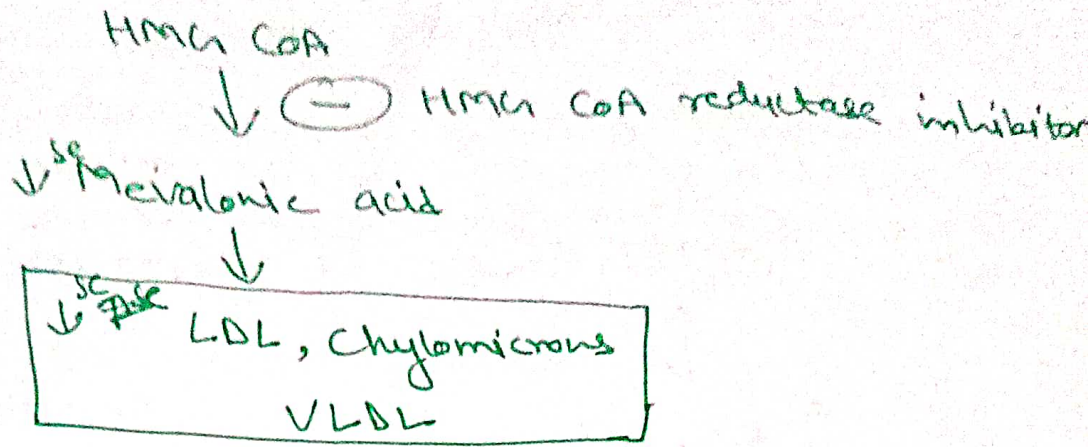 HMG CoA
↓ ⊖ HMG CoA reductase inhibitor
↓se Mevalonic acid
↓
↓se LDL, Chylomicrons
VLDL